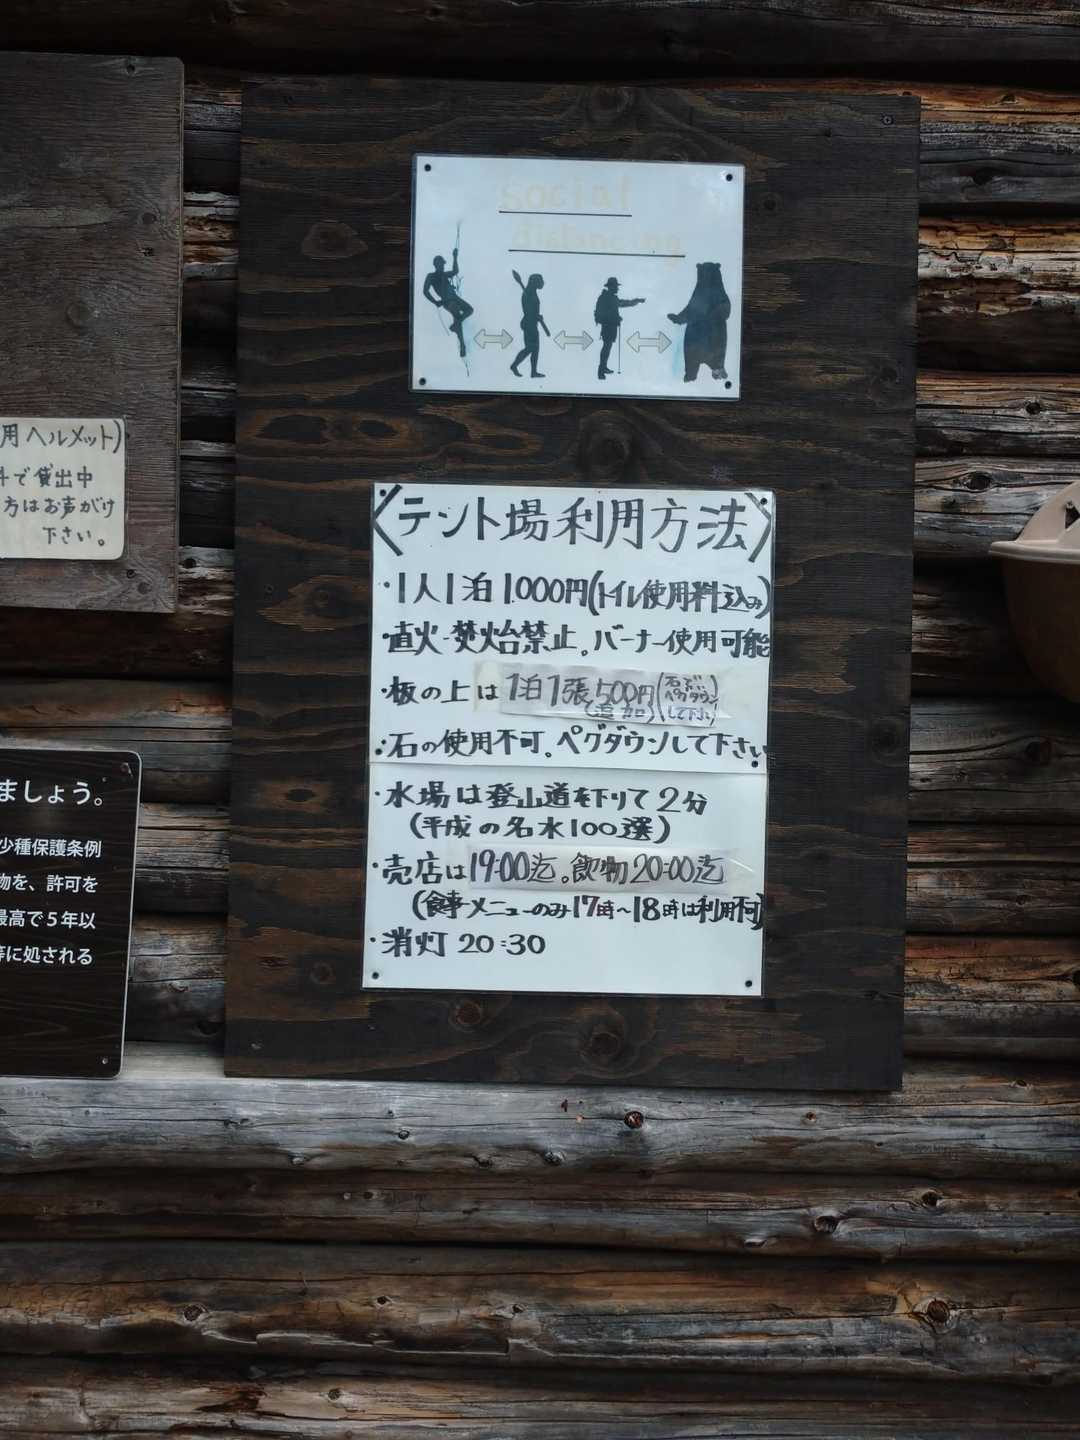 social
distancing
用ヘルメット)
で貸出中
方はお声がけ
下さい。
〈テント場利用方法〉
・1人1泊1.000円(トイレ使用料込み)
・直火・焚火台禁止。バーナー使用可能
・板の上は1泊1張500円(追加)(石でペグダウンして下さい)
・石の使用不可。ペグダウンして下さい
・水場は登山道を下りて2分
(平成の名水100選)
・売店は19:00迄。飲物20:00迄
(食事メニューのみ17時〜18時は利用不可)
・消灯 20:30
ましょう。
少種保護条例
物を、許可を
最高で5年以
等に処される